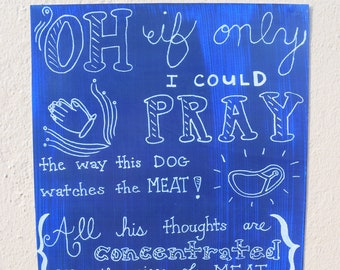 OH if only
I COULD
PRAY
the way this DOG
watches the MEAT!
All his thoughts are
concentrated
of MEAT